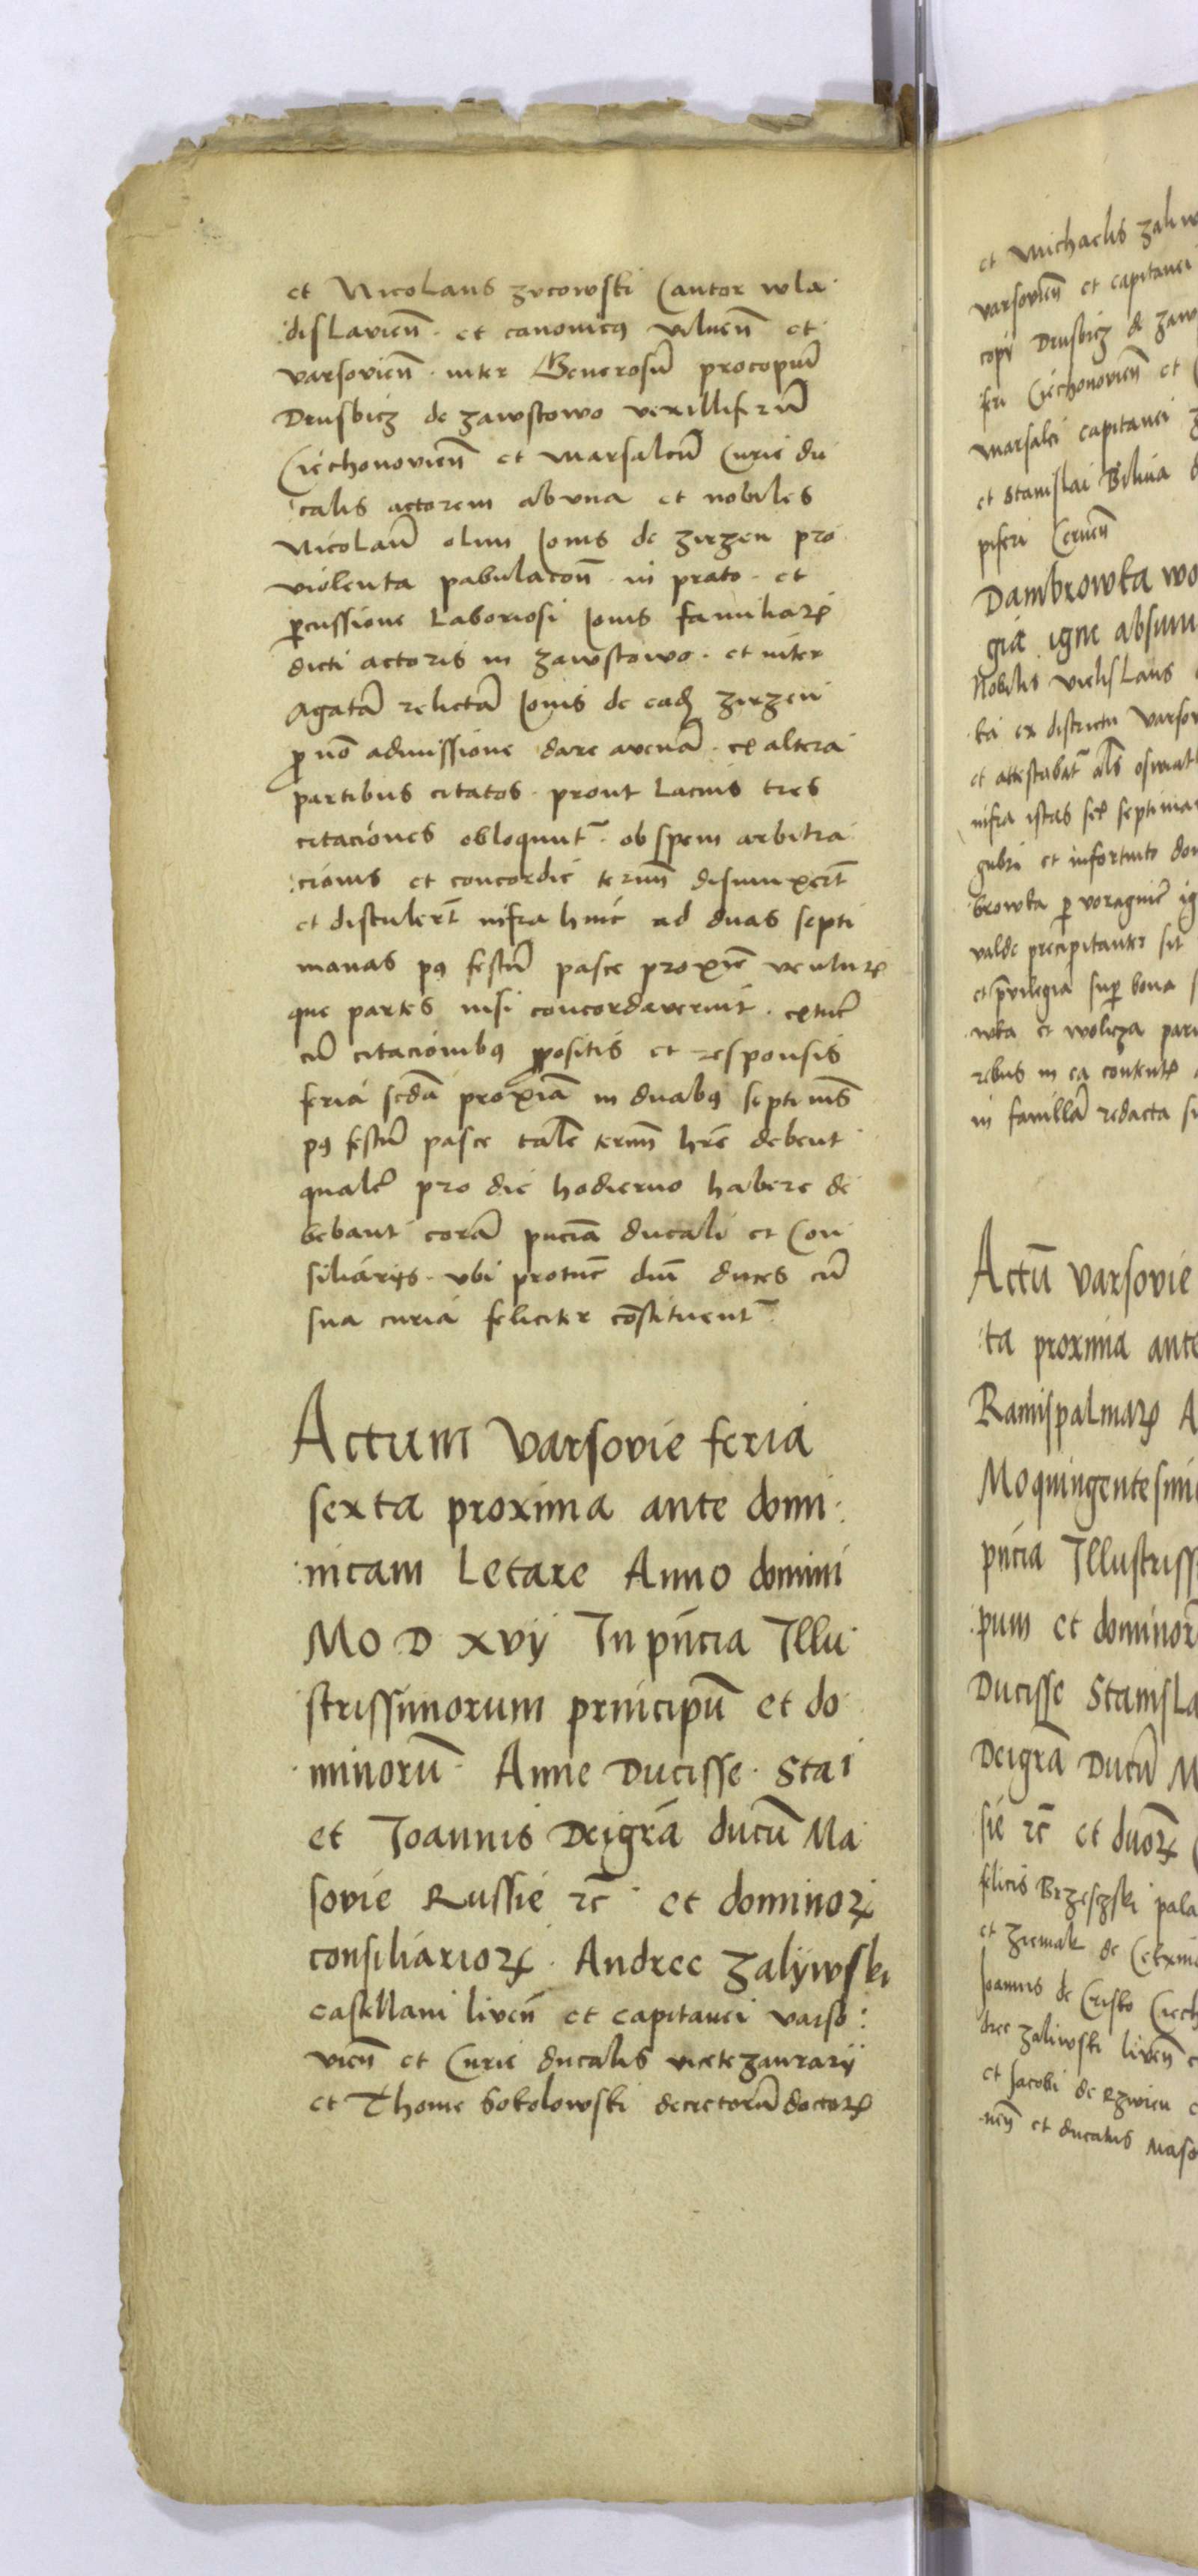 et Nicolaus zucowski Cantor wla
dislavień et canonicꝰ vilneń et
varsovień inter Generosū procopiū
Drusbicz de zawstowo vexilliferū
Ciechonovień et marsalcū Curie du
calis actorem ab vna et nobiles
Nicolaū olim Joīs de zirzen pro
violenta pabulacoń in prato et
ꝑcussione Laboriosi Joīs familiarꝭ
dicti actoris in zawstowo et inter
Agatā relictā Joīs de eadꝫ zirzen
ꝓ nō admissione dare avenā ex altera
partibus citatos prout Lacius tres
citaciones obloquunt̄ ob spem arbitra
cionis et concordie termī disiunxert̄
et distulert̄ infra hinc ad duas septi
manas pꝰ festū pasce proxīe venturꝭ
que partes nisi concordaverint extūc
cū citacionibꝰ ꝓpositis et responsis
feria sedā proxīa in duabꝰ septīīs
pꝰ festū pasce talē termī hrē debent
qualē pro die hodierno habere de
bebant corā pn̄cia ducali et Con
siliariis vbi protūc dnī duces cū
sua curia feliciter cōstituent̄
Actum varsovie feria
sexta proxima ante domi
nicam Letare Anno domini
Mo D xvij In pn̄cia Illu
strissimorum principū et do
minorū Anne Ducisse Stai
et Joannis Deigrā ducū Ma
sovie Russie ꝛc̄ et dominoꝝ
consiliarioꝝ Andree zalijwski
castellani liveń et capitanei varso
vień et Curie ducalis vicetezaurarij
et Thome Sokolowski decretorū doctorꝭ
et Michaelis zaliw
varsovień et capitanei
copij Drusbicz de zaw
feri Ciechonovień et
marsalci capitanei
et Stanislai Bilina
piferi Cerneń
Dambrowka wo
gia igne absum
Nobilis vielislaus
ka ex districtu varsov
et attestabat̄ als
infra istas sex septima
gubri et infortuito do
browka ꝑ voraginē ig
valde precipitanter sit
et pͥvilegia suꝑ bona
wka et wolicza pari
rebus in ea contentꝭ
in favillā redacta
Actū varsovie
ta proxima ante
Ramispalmarꝭ A
Moquingentesimi
pn̄cia Illustriss
pum et dominor
Ducisse Stanisla
Deigrā Ducū M
sie ꝛc̄ et dnoꝝ
felicis Brzesczski pala
et ziemak de
Joannis de Cristo Ciech
dree zaliwski liveń
et Jacobi de Rzwien
neń et ducatus Maso